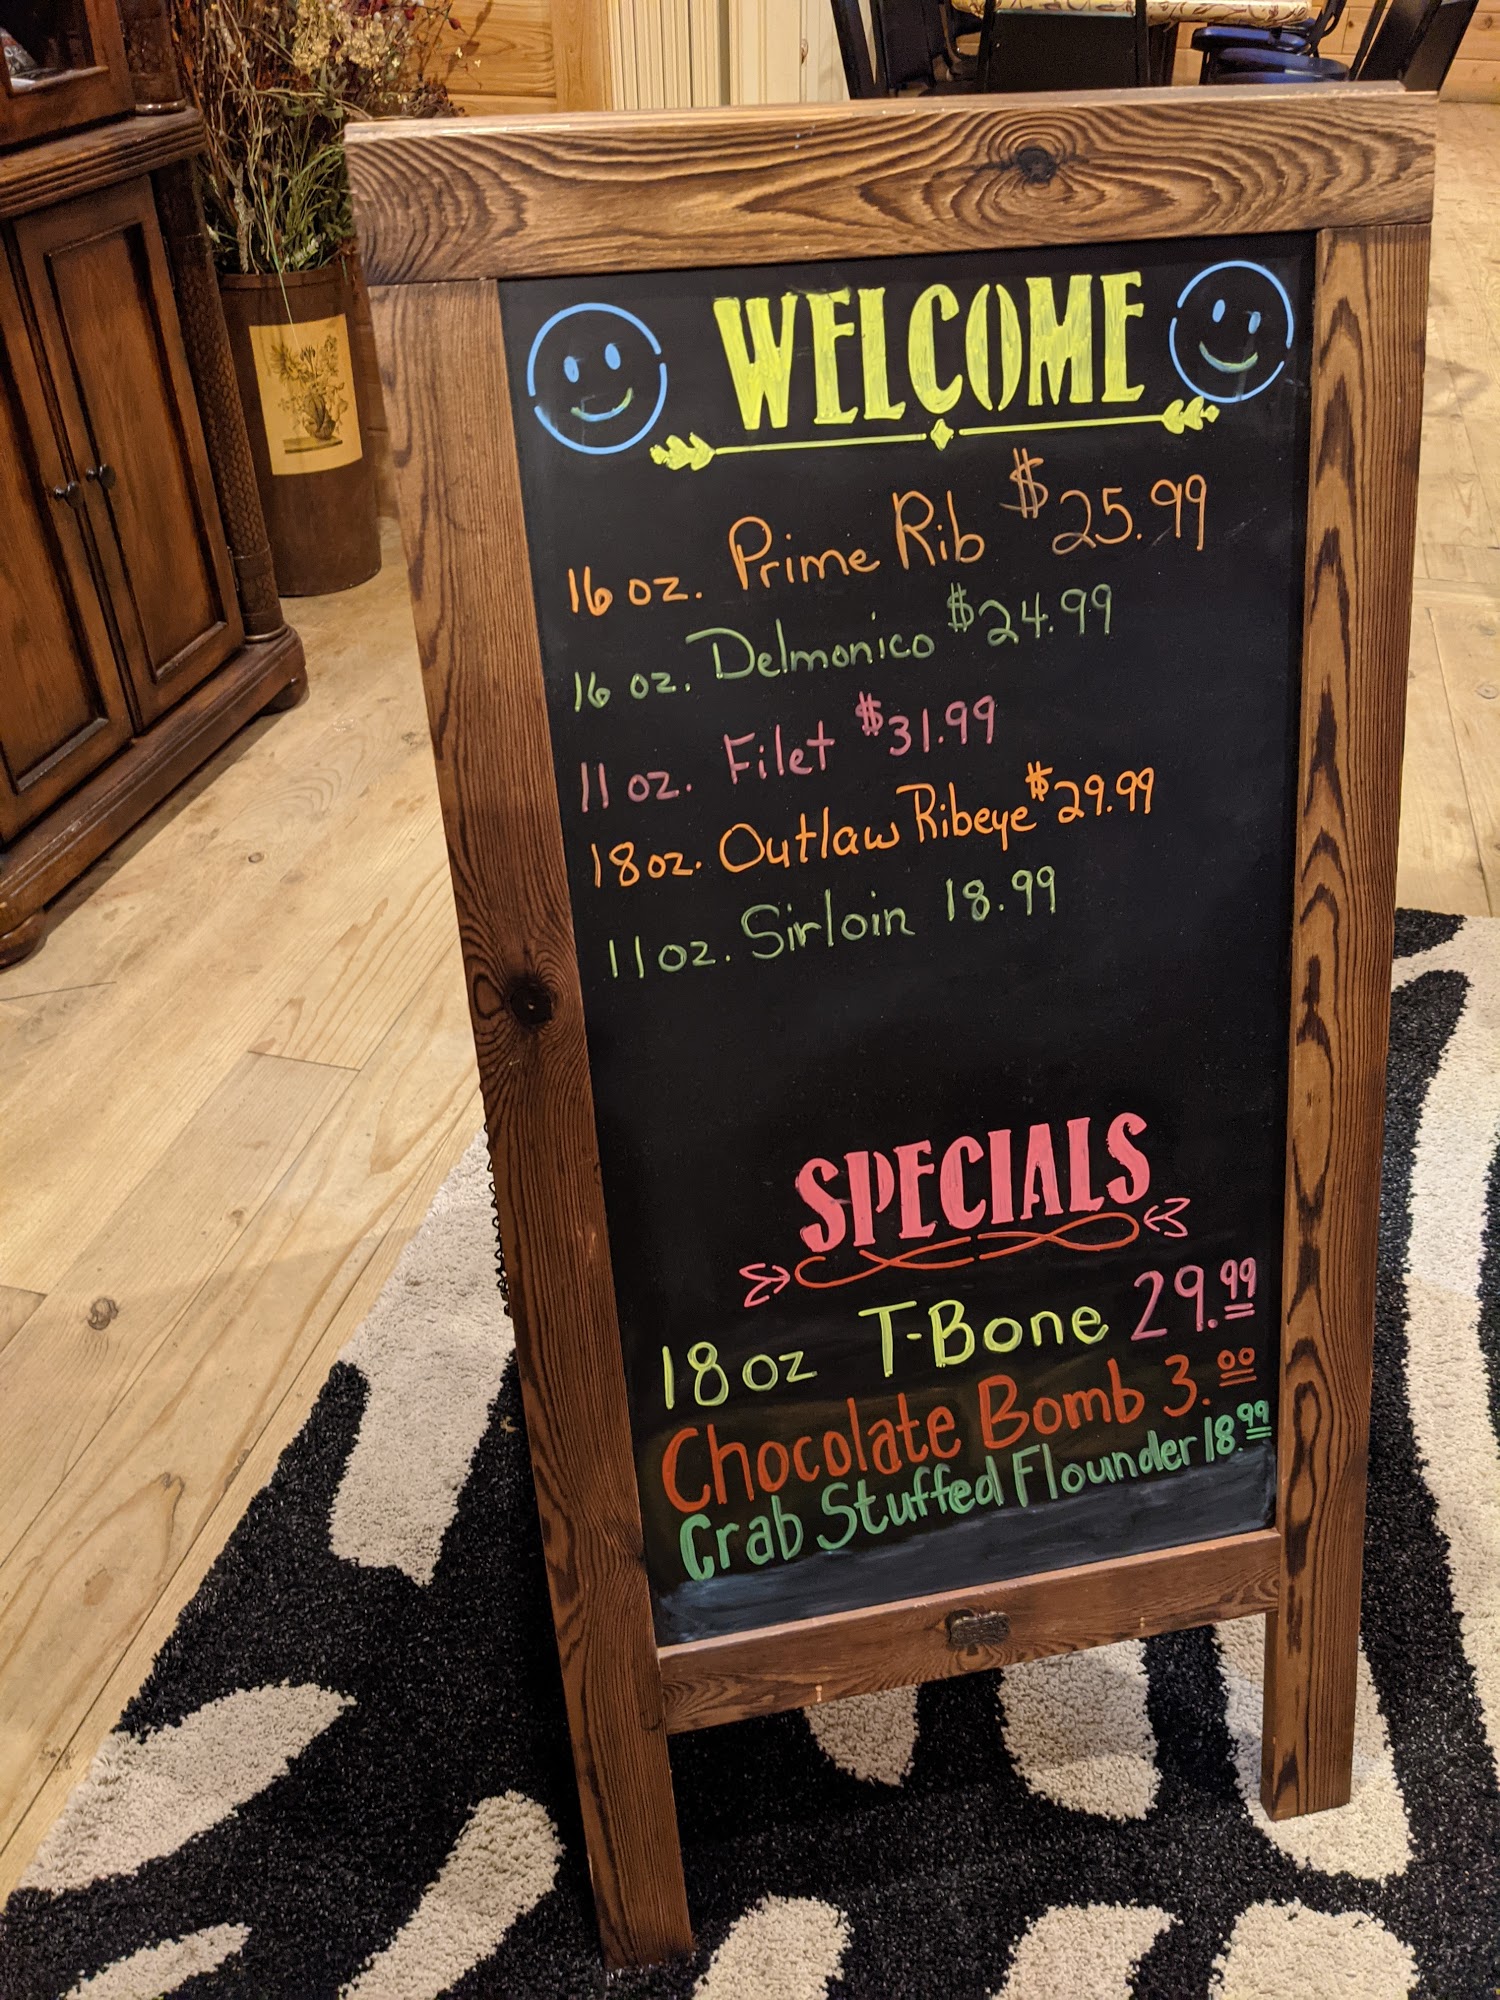 WELCOME
16 oz. Prime Rib $25.99
16 oz. Delmonico $24.99
11 oz. Filet $31.99
18 oz. Outlaw Ribeye $29.99
11 oz. Sirloin 18.99
SPECIALS
18 oz T-Bone 29.99
Chocolate Bomb 3.00
Crab Stuffed Flounder 18.99